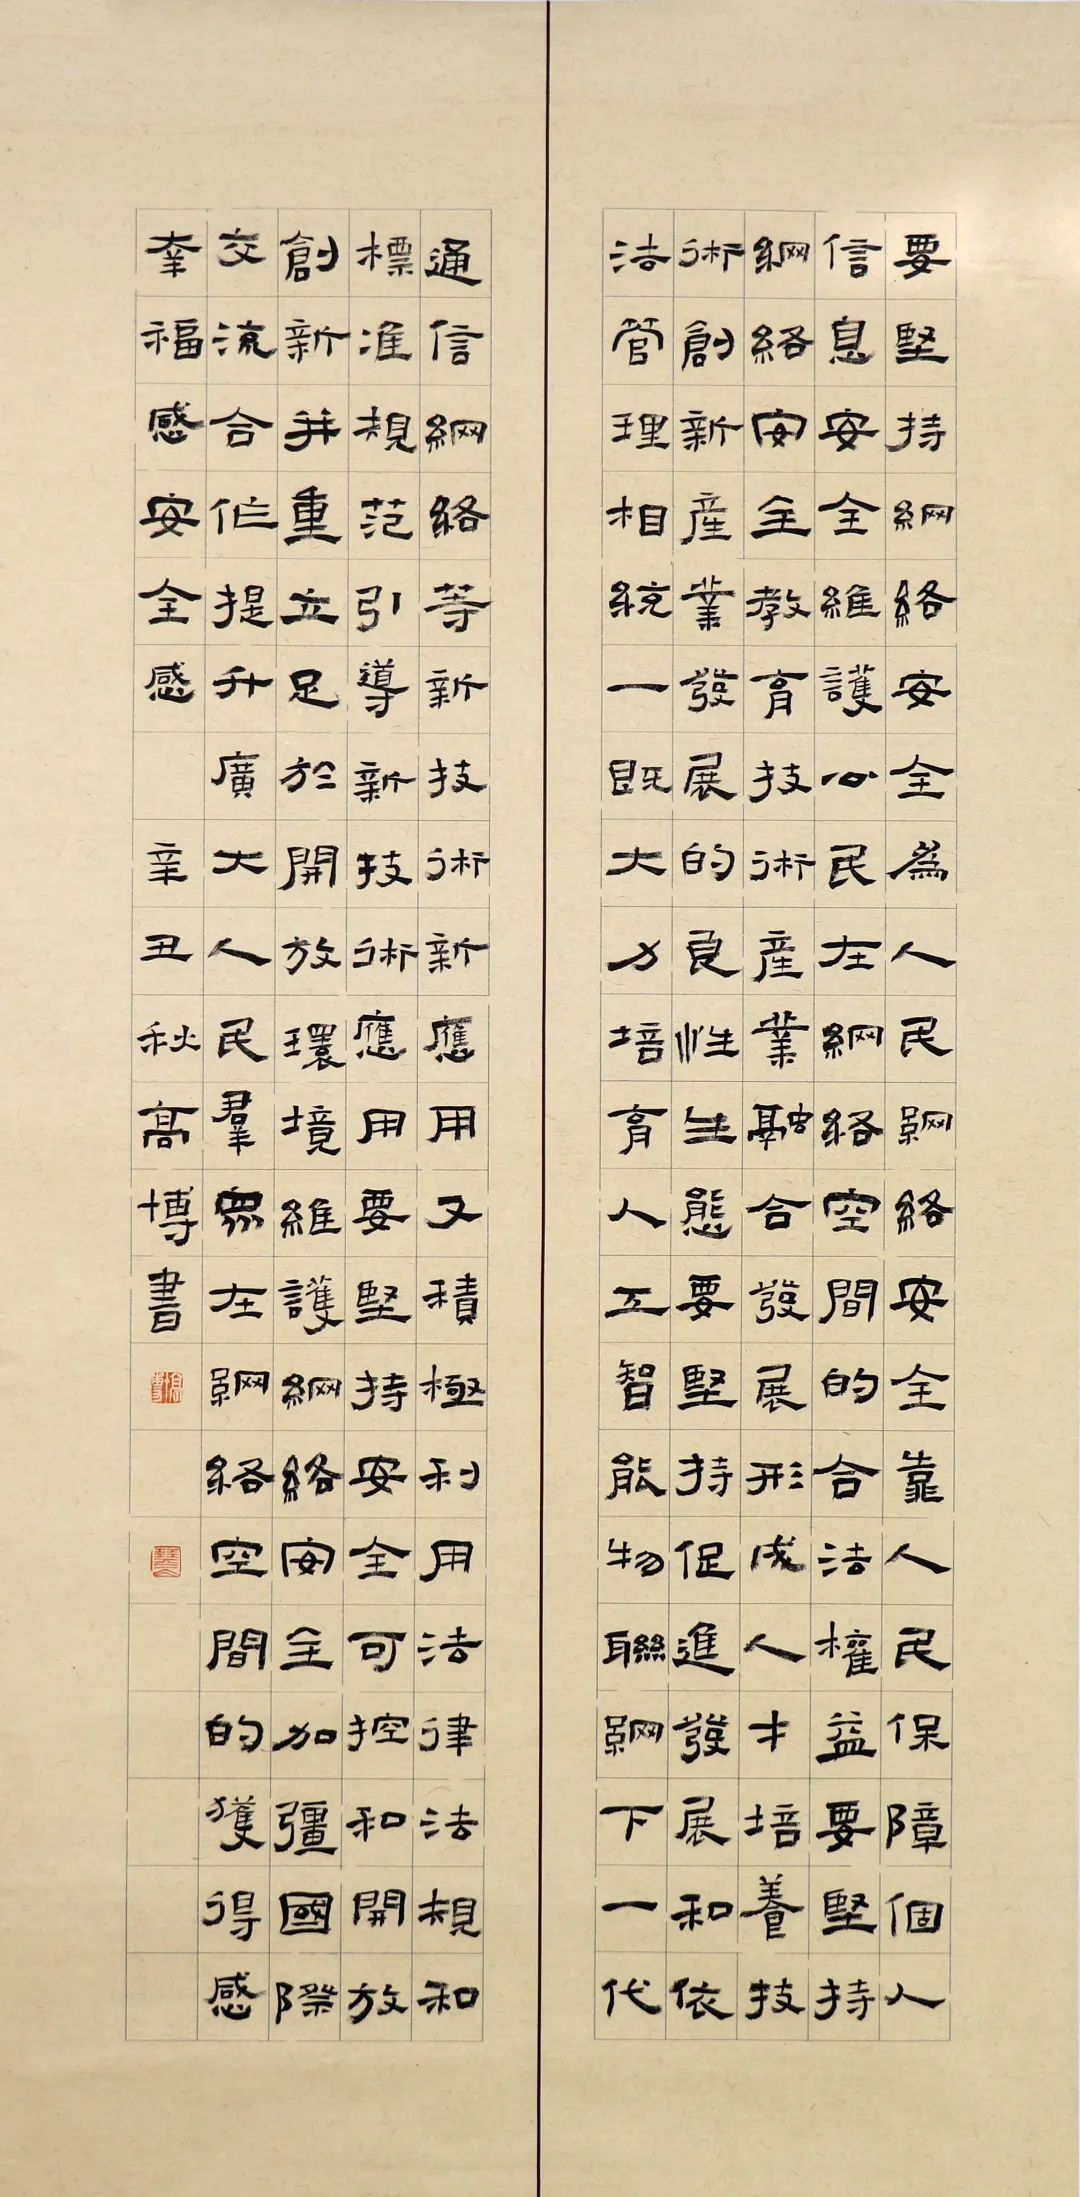 要堅持網絡安全為人民網絡安全靠人民保障個人
信息安全維護公民在網絡空間的合法權益要堅持
網絡安全教育技術產業融合發展形成人才培養技
術創新產業發展的良性生態要堅持促進發展和依
法管理相統一既大力培育人工智能物聯網下一代
通信網絡等新技術新應用又積極利用法律法規和
標准規范引導新技術應用要堅持安全可控和開放
創新并重立足於開放環境維護網絡安全加彊國際
交流合作提升廣大人民羣眾在網絡空間的獲得感
幸福感安全感 辛丑秋高博書